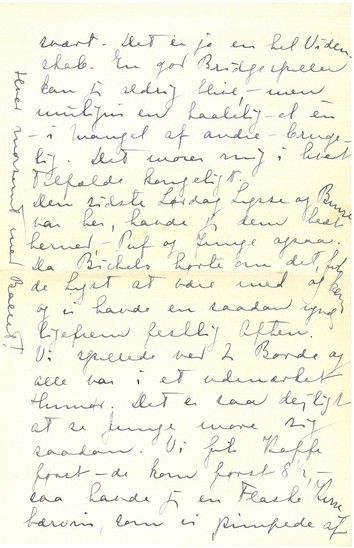 svært. Det er jo en hel Viden-
skab. En god Bridgespiller
kan jeg aldrig blive, men
muligvis en haabelig - et én
- i Mangel af andre - bruge-
lig. Det morer mig i hvert
Tilfælde kongeligt.
Den sidste Lørdag Lysse og Bums
var her, havde jeg dem bedt
herned, - Puf og Junge ogsaa.
Da Bichels hørte om det, fik
de Lyst at være med og kom
og vi havde en saadan rigtig
ligefrem festlig Aften.
Vi spillede ved 2 Borde og
alle var i et udmærket
Humør. Det er saa dejligt
at se Junge more sig
saadan. Vi fik Kaffe
først - de kom først 8½ -
saa havde jeg en Flaske Kirse
bærvin, som vi pimpede af
Hvor morsomt med Ballet!